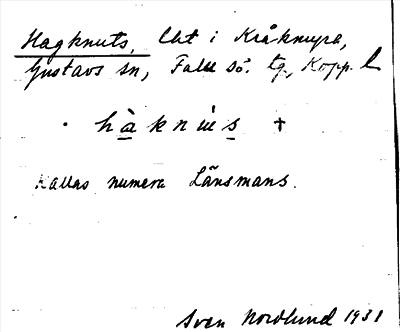 Hagknuts, Lht i Kråknupa,
Gustavs sn, Falu Sö. tg., Kopp. l
h à k n ù s +
Kallas numera Länsmans.
Sven Nordlund 1931